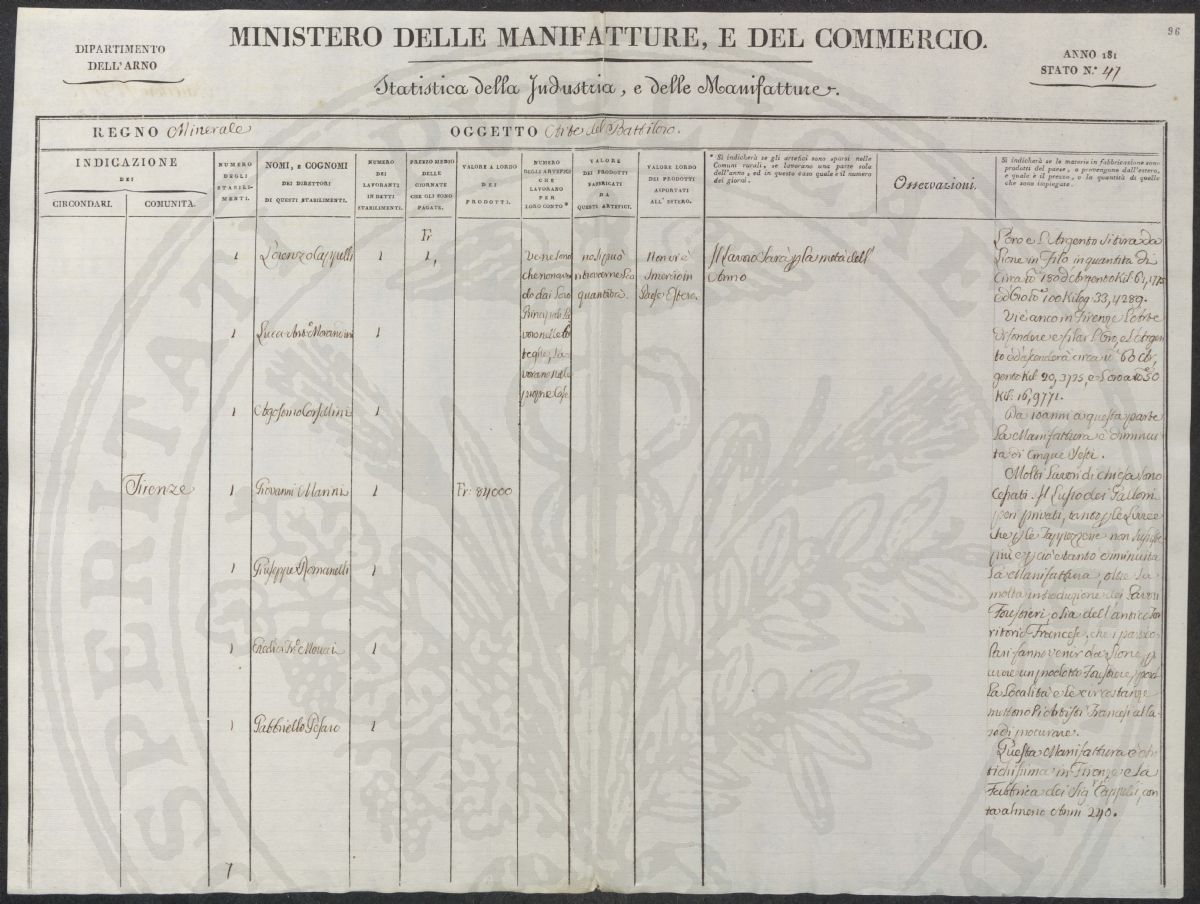 96
MINISTERO DELLE MANIFATTURE, E DEL COMMERCIO.
DIPARTIMENTO
DELL'ARNO
ANNO 181
STATO N.° 47
Statistica della Industria, e delle Manifatture.
REGNO Minerale
OGGETTO Arte del Battiloro.
INDICAZIONE
DEI
CIRCONDARI.
COMUNITÀ.
NUMERO
DEGLI
STABILI-
MENTI.
NOMI, E COGNOMI
DEI DIRETTORI
DI QUESTI STABILIMENTI.
NUMERO
DEI
LAVORANTI
IN DETTI
STABILIMENTI.
PREZZO MEDIO
DELLE
GIORNATE
CHE GLI SONO
PAGATE.
VALORE A LORDO
DEI
PRODOTTI.
NUMERO
DEGLI ARTEFICI
CHE
LAVORANO
PER
LORO CONTO*
VALORE
DEI PRODOTTI
FABBRICATI
DA
QUESTI ARTEFICI.
VALORE LORDO
DEI PRODOTTI
ASPORTATI
ALL'ESTERO.
* Si indicherà se gli artefici sono sparsi nelle
Comuni rurali, se lavorano una parte sola
dell'anno, ed in questo caso quale è il numero
dei giorni.
Osservazioni.
Si indicherà se le materie in fabbricazione sono
prodotti del paese, o provengono dall'estero,
e quale è il prezzo, o la quantità di quelle
che sono impiegate.
Fr
1 Lorenzo Cappelli 1 1,
Ve ne sono
che non aven
do dai loro
Principali la
voro nelle bo
teghe, la
vorano nelle
proprie Case
non si può
ritrovarne la
quantità.
Non vi è
smercio in
Paese Estero.
Il lavoro sarà p la metà dell'
Anno
1 Luca Ant.° Morandini 1
1 Agostino Corsellini 1
Firenze 1 Giovanni Manni 1 Fr: 84000
1 Giuseppe Romanelli 1
1 Eredi di Fr.° 1
1 Gabbriello Pesaro 1
7
L'oro e L'Argento si tira da
Lione in Filo in quantità di
Circa 180 d'Argento Kil. 61,1175
ed Oro 100 Kilog 33,4289.
Vi è anco in Firenze l'arte
di fondere e filar l'Oro, e l'Argen
to e da fonderà circa 60 Ar,
gento Kil 20,3725, e L'oro a 50
Kil: 16,9771.
Da 10 anni a questa parte
La Manifattura è diminui
ta di Cinque Sesti.
Molti Lavori di chiesa sono
Cessati. Il Lusso dei Galloni
pon privati, tanto p le Livree
che p le Tappezzerie non sussiste
più e p ciò è tanto diminuita
La Manifattura, oltre la
molta introduzione dei Lavori
Forestieri, o sia dell'antico Ter
ritorio Francese, che i partico
lari fanno venir da Lione, p
avere un prodotto Forestiere, p cui
La Località e le circostanze
mettono li Artisti Francesi al ca
so di procurare.
Questa Manifattura è An
tichissima in Firenze e La
Fabbrica dei Sig.ri Cappelli, con
ta almeno Anni 240.
PERITATI